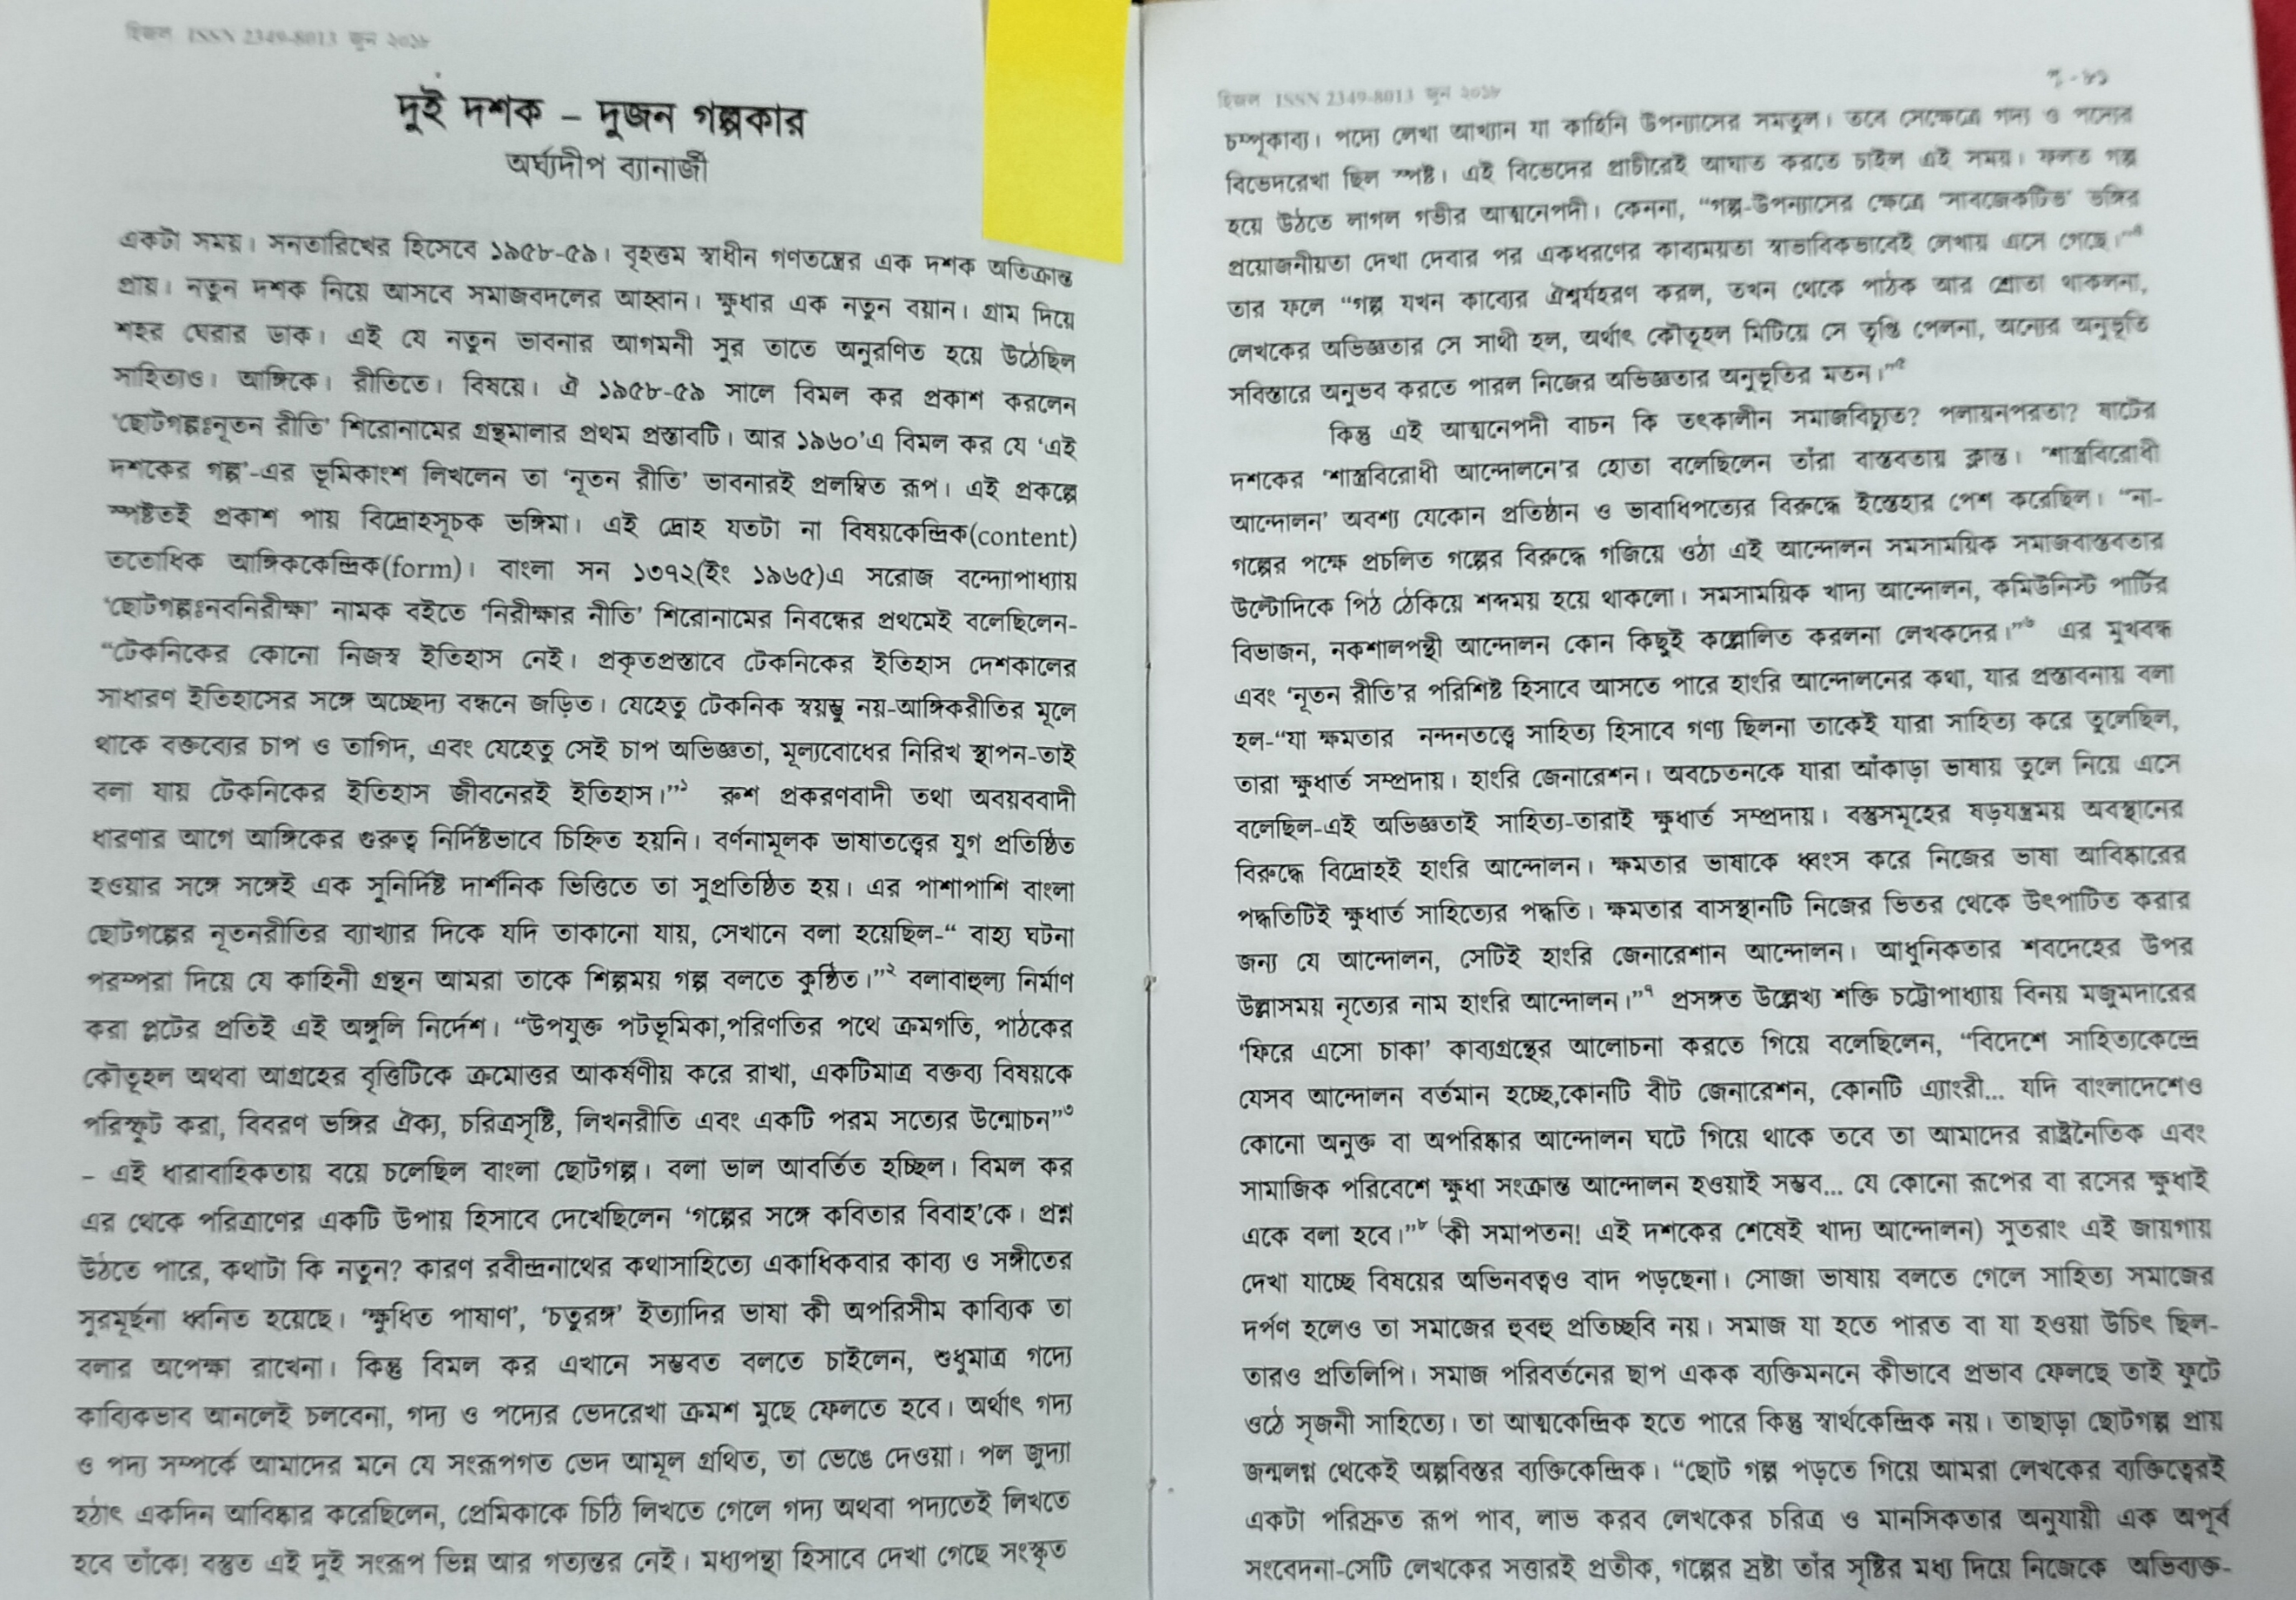 হিজল ISSN 2349-8013 জুন ২০১৮
দুই দশক – দুজন গল্পকার
অর্ঘ্যদীপ ব্যানার্জী
একটা সময়। সনতারিখের হিসেবে ১৯৫৮-৫৯। বৃহত্তম স্বাধীন গণতন্ত্রের এক দশক অতিক্রান্ত
প্রায়। নতুন দশক নিয়ে আসবে সমাজবদলের আহ্বান। ক্ষুধার এক নতুন বয়ান। গ্রাম দিয়ে
শহর ঘেরার ডাক। এই যে নতুন ভাবনার আগমনী সুর তাতে অনুরণিত হয়ে উঠেছিল
সাহিত্যও। আঙ্গিকে। রীতিতে। বিষয়ে। ঐ ১৯৫৮-৫৯ সালে বিমল কর প্রকাশ করলেন
‘ছোটগল্পঃনূতন রীতি’ শিরোনামের গ্রন্থমালার প্রথম প্রস্তাবটি। আর ১৯৬০’এ বিমল কর যে ‘এই
দশকের গল্প’-এর ভূমিকাংশ লিখলেন তা ‘নূতন রীতি’ ভাবনারই প্রলম্বিত রূপ। এই প্রকল্পে
স্পষ্টতই প্রকাশ পায় বিদ্রোহসূচক ভঙ্গিমা। এই দ্রোহ যতটা না বিষয়কেন্দ্রিক(content)
ততোধিক আঙ্গিককেন্দ্রিক(form)। বাংলা সন ১৩৭২(ইং ১৯৬৫)এ সরোজ বন্দ্যোপাধ্যায়
‘ছোটগল্পঃনবনিরীক্ষা’ নামক বইতে ‘নিরীক্ষার নীতি’ শিরোনামের নিবন্ধের প্রথমেই বলেছিলেন-
“টেকনিকের কোনো নিজস্ব ইতিহাস নেই। প্রকৃতপ্রস্তাবে টেকনিকের ইতিহাস দেশকালের
সাধারণ ইতিহাসের সঙ্গে অচ্ছেদ্য বন্ধনে জড়িত। যেহেতু টেকনিক স্বয়ম্ভু নয়-আঙ্গিকরীতির মূলে
থাকে বক্তব্যের চাপ ও তাগিদ, এবং যেহেতু সেই চাপ অভিজ্ঞতা, মূল্যবোধের নিরিখ স্থাপন-তাই
বলা যায় টেকনিকের ইতিহাস জীবনেরই ইতিহাস।”১ রুশ প্রকরণবাদী তথা অবয়ববাদী
ধারণার আগে আঙ্গিকের গুরুত্ব নির্দিষ্টভাবে চিহ্নিত হয়নি। বর্ণনামূলক ভাষাতত্ত্বের যুগ প্রতিষ্ঠিত
হওয়ার সঙ্গে সঙ্গেই এক সুনির্দিষ্ট দার্শনিক ভিত্তিতে তা সুপ্রতিষ্ঠিত হয়। এর পাশাপাশি বাংলা
ছোটগল্পের নূতনরীতির ব্যাখ্যার দিকে যদি তাকানো যায়, সেখানে বলা হয়েছিল-“ বাহ্য ঘটনা
পরম্পরা দিয়ে যে কাহিনী গ্রন্থন আমরা তাকে শিল্পময় গল্প বলতে কুন্ঠিত।”২ বলাবাহুল্য নির্মাণ
করা প্লটের প্রতিই এই অঙ্গুলি নির্দেশ। “উপযুক্ত পটভূমিকা,পরিণতির পথে ক্রমগতি, পাঠকের
কৌতূহল অথবা আগ্রহের বৃত্তিটিকে ক্রমোত্তর আকর্ষণীয় করে রাখা, একটিমাত্র বক্তব্য বিষয়কে
পরিস্ফুট করা, বিবরণ ভঙ্গির ঐক্য, চরিত্রসৃষ্টি, লিখনরীতি এবং একটি পরম সত্যের উন্মোচন”৩
– এই ধারাবাহিকতায় বয়ে চলেছিল বাংলা ছোটগল্প। বলা ভাল আবর্তিত হচ্ছিল। বিমল কর
এর থেকে পরিত্রাণের একটি উপায় হিসাবে দেখেছিলেন ‘গল্পের সঙ্গে কবিতার বিবাহ’কে। প্রশ্ন
উঠতে পারে, কথাটা কি নতুন? কারণ রবীন্দ্রনাথের কথাসাহিত্যে একাধিকবার কাব্য ও সঙ্গীতের
সুরমূর্ছনা ধ্বনিত হয়েছে। ‘ক্ষুধিত পাষাণ’, ‘চতুরঙ্গ’ ইত্যাদির ভাষা কী অপরিসীম কাব্যিক তা
বলার অপেক্ষা রাখেনা। কিন্তু বিমল কর এখানে সম্ভবত বলতে চাইলেন, শুধুমাত্র গদ্যে
কাব্যিকভাব আনলেই চলবেনা, গদ্য ও পদ্যের ভেদরেখা ক্রমশ মুছে ফেলতে হবে। অর্থাৎ গদ্য
ও পদ্য সম্পর্কে আমাদের মনে যে সংরূপগত ভেদ আমূল গ্রথিত, তা ভেঙে দেওয়া। পল জুদ্যা
হঠাৎ একদিন আবিষ্কার করেছিলেন, প্রেমিকাকে চিঠি লিখতে গেলে গদ্য অথবা পদ্যতেই লিখতে
হবে তাঁকে! বস্তুত এই দুই সংরূপ ভিন্ন আর গত্যন্তর নেই। মধ্যপন্থা হিসাবে দেখা গেছে সংস্কৃত
হিজল ISSN 2349-8013 জুন ২০১৮
চম্পূকাব্য। পদ্যে লেখা আখ্যান যা কাহিনি উপন্যাসের সমতুল। তবে সেক্ষেত্রে গদ্য ও পদ্যের
বিভেদরেখা ছিল স্পষ্ট। এই বিভেদের প্রাচীরেই আঘাত করতে চাইল এই সময়। ফলত গল্প
হয়ে উঠতে লাগল গভীর আত্মনেপদী। কেননা, “গল্প-উপন্যাসের ক্ষেত্রে ‘সাবজেকটিভ’ ভঙ্গির
প্রয়োজনীয়তা দেখা দেবার পর একধরণের কাব্যময়তা স্বাভাবিকভাবেই লেখায় এসে গেছে।”৪
তার ফলে “গল্প যখন কাব্যের ঐশ্বর্যহরণ করল, তখন থেকে পাঠক আর শ্রোতা থাকলনা,
লেখকের অভিজ্ঞতার সে সাথী হল, অর্থাৎ কৌতূহল মিটিয়ে সে তৃপ্তি পেলনা, অন্যের অনুভূতি
সবিস্তারে অনুভব করতে পারল নিজের অভিজ্ঞতার অনুভূতির মতন।”৫
কিন্তু এই আত্মনেপদী বাচন কি তৎকালীন সমাজবিচ্যুত? পলায়নপরতা? ষাটের
দশকের ‘শাস্ত্রবিরোধী আন্দোলনে’র হোতা বলেছিলেন তাঁরা বাস্তবতায় ক্লান্ত। ‘শাস্ত্রবিরোধী
আন্দোলন’ অবশ্য যেকোন প্রতিষ্ঠান ও ভাবাধিপত্যের বিরুদ্ধে ইস্তেহার পেশ করেছিল। “না-
গল্পের পক্ষে প্রচলিত গল্পের বিরুদ্ধে গজিয়ে ওঠা এই আন্দোলন সমসাময়িক সমাজবাস্তবতার
উল্টোদিকে পিঠ ঠেকিয়ে শব্দময় হয়ে থাকলো। সমসাময়িক খাদ্য আন্দোলন, কমিউনিস্ট পার্টির
বিভাজন, নকশালপন্থী আন্দোলন কোন কিছুই কল্লোলিত করলনা লেখকদের।”৬ এর মুখবন্ধ
এবং ‘নূতন রীতি’র পরিশিষ্ট হিসাবে আসতে পারে হাংরি আন্দোলনের কথা, যার প্রস্তাবনায় বলা
হল-“যা ক্ষমতার নন্দনতত্ত্বে সাহিত্য হিসাবে গণ্য ছিলনা তাকেই যারা সাহিত্য করে তুলেছিল,
তারা ক্ষুধার্ত সম্প্রদায়। হাংরি জেনারেশন। অবচেতনকে যারা আঁকাড়া ভাষায় তুলে নিয়ে এসে
বলেছিল-এই অভিজ্ঞতাই সাহিত্য-তারাই ক্ষুধার্ত সম্প্রদায়। বস্তুসমূহের ষড়যন্ত্রময় অবস্থানের
বিরুদ্ধে বিদ্রোহই হাংরি আন্দোলন। ক্ষমতার ভাষাকে ধ্বংস করে নিজের ভাষা আবিষ্কারের
পদ্ধতিটিই ক্ষুধার্ত সাহিত্যের পদ্ধতি। ক্ষমতার বাসস্থানটি নিজের ভিতর থেকে উৎপাটিত করার
জন্য যে আন্দোলন, সেটিই হাংরি জেনারেশান আন্দোলন। আধুনিকতার শবদেহের উপর
উল্লাসময় নৃত্যের নাম হাংরি আন্দোলন।”৭ প্রসঙ্গত উল্লেখ্য শক্তি চট্টোপাধ্যায় বিনয় মজুমদারের
‘ফিরে এসো চাকা’ কাব্যগ্রন্থের আলোচনা করতে গিয়ে বলেছিলেন, “বিদেশে সাহিত্যকেন্দ্রে
যেসব আন্দোলন বর্তমান হচ্ছে,কোনটি বীট জেনারেশন, কোনটি এ্যাংরী... যদি বাংলাদেশেও
কোনো অনুক্ত বা অপরিষ্কার আন্দোলন ঘটে গিয়ে থাকে তবে তা আমাদের রাষ্ট্রনৈতিক এবং
সামাজিক পরিবেশে ক্ষুধা সংক্রান্ত আন্দোলন হওয়াই সম্ভব... যে কোনো রূপের বা রসের ক্ষুধাই
একে বলা হবে।”৮ (কী সমাপতন! এই দশকের শেষেই খাদ্য আন্দোলন) সুতরাং এই জায়গায়
দেখা যাচ্ছে বিষয়ের অভিনবত্বও বাদ পড়ছেনা। সোজা ভাষায় বলতে গেলে সাহিত্য সমাজের
দর্পণ হলেও তা সমাজের হুবহু প্রতিচ্ছবি নয়। সমাজ যা হতে পারত বা যা হওয়া উচিৎ ছিল-
তারও প্রতিলিপি। সমাজ পরিবর্তনের ছাপ একক ব্যক্তিমননে কীভাবে প্রভাব ফেলছে তাই ফুটে
ওঠে সৃজনী সাহিত্যে। তা আত্মকেন্দ্রিক হতে পারে কিন্তু স্বার্থকেন্দ্রিক নয়। তাছাড়া ছোটগল্প প্রায়
জন্মলগ্ন থেকেই অল্পবিস্তর ব্যক্তিকেন্দ্রিক। “ছোট গল্প পড়তে গিয়ে আমরা লেখকের ব্যক্তিত্বেরই
একটা পরিস্রুত রূপ পাব, লাভ করব লেখকের চরিত্র ও মানসিকতার অনুযায়ী এক অপূর্ব
সংবেদনা-সেটি লেখকের সত্তারই প্রতীক, গল্পের স্রষ্টা তাঁর সৃষ্টির মধ্য দিয়ে নিজেকে অভিব্যক্ত-